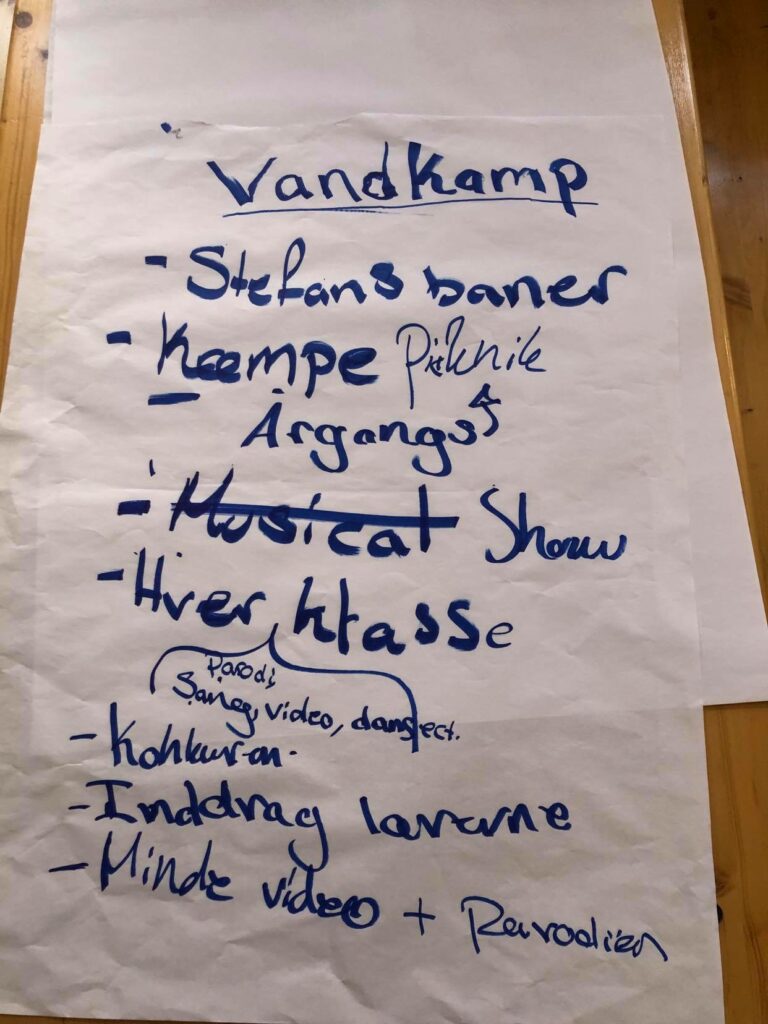 Vandkamp
- Stefans baner
- Kæmpe Piknik
- Årgangs
- Musical Show
- Hver klasse
Parodi,
Sang, video, dans ect.
- Konkur-en-
- Inddrag lærerne
- Minde video + Parodien